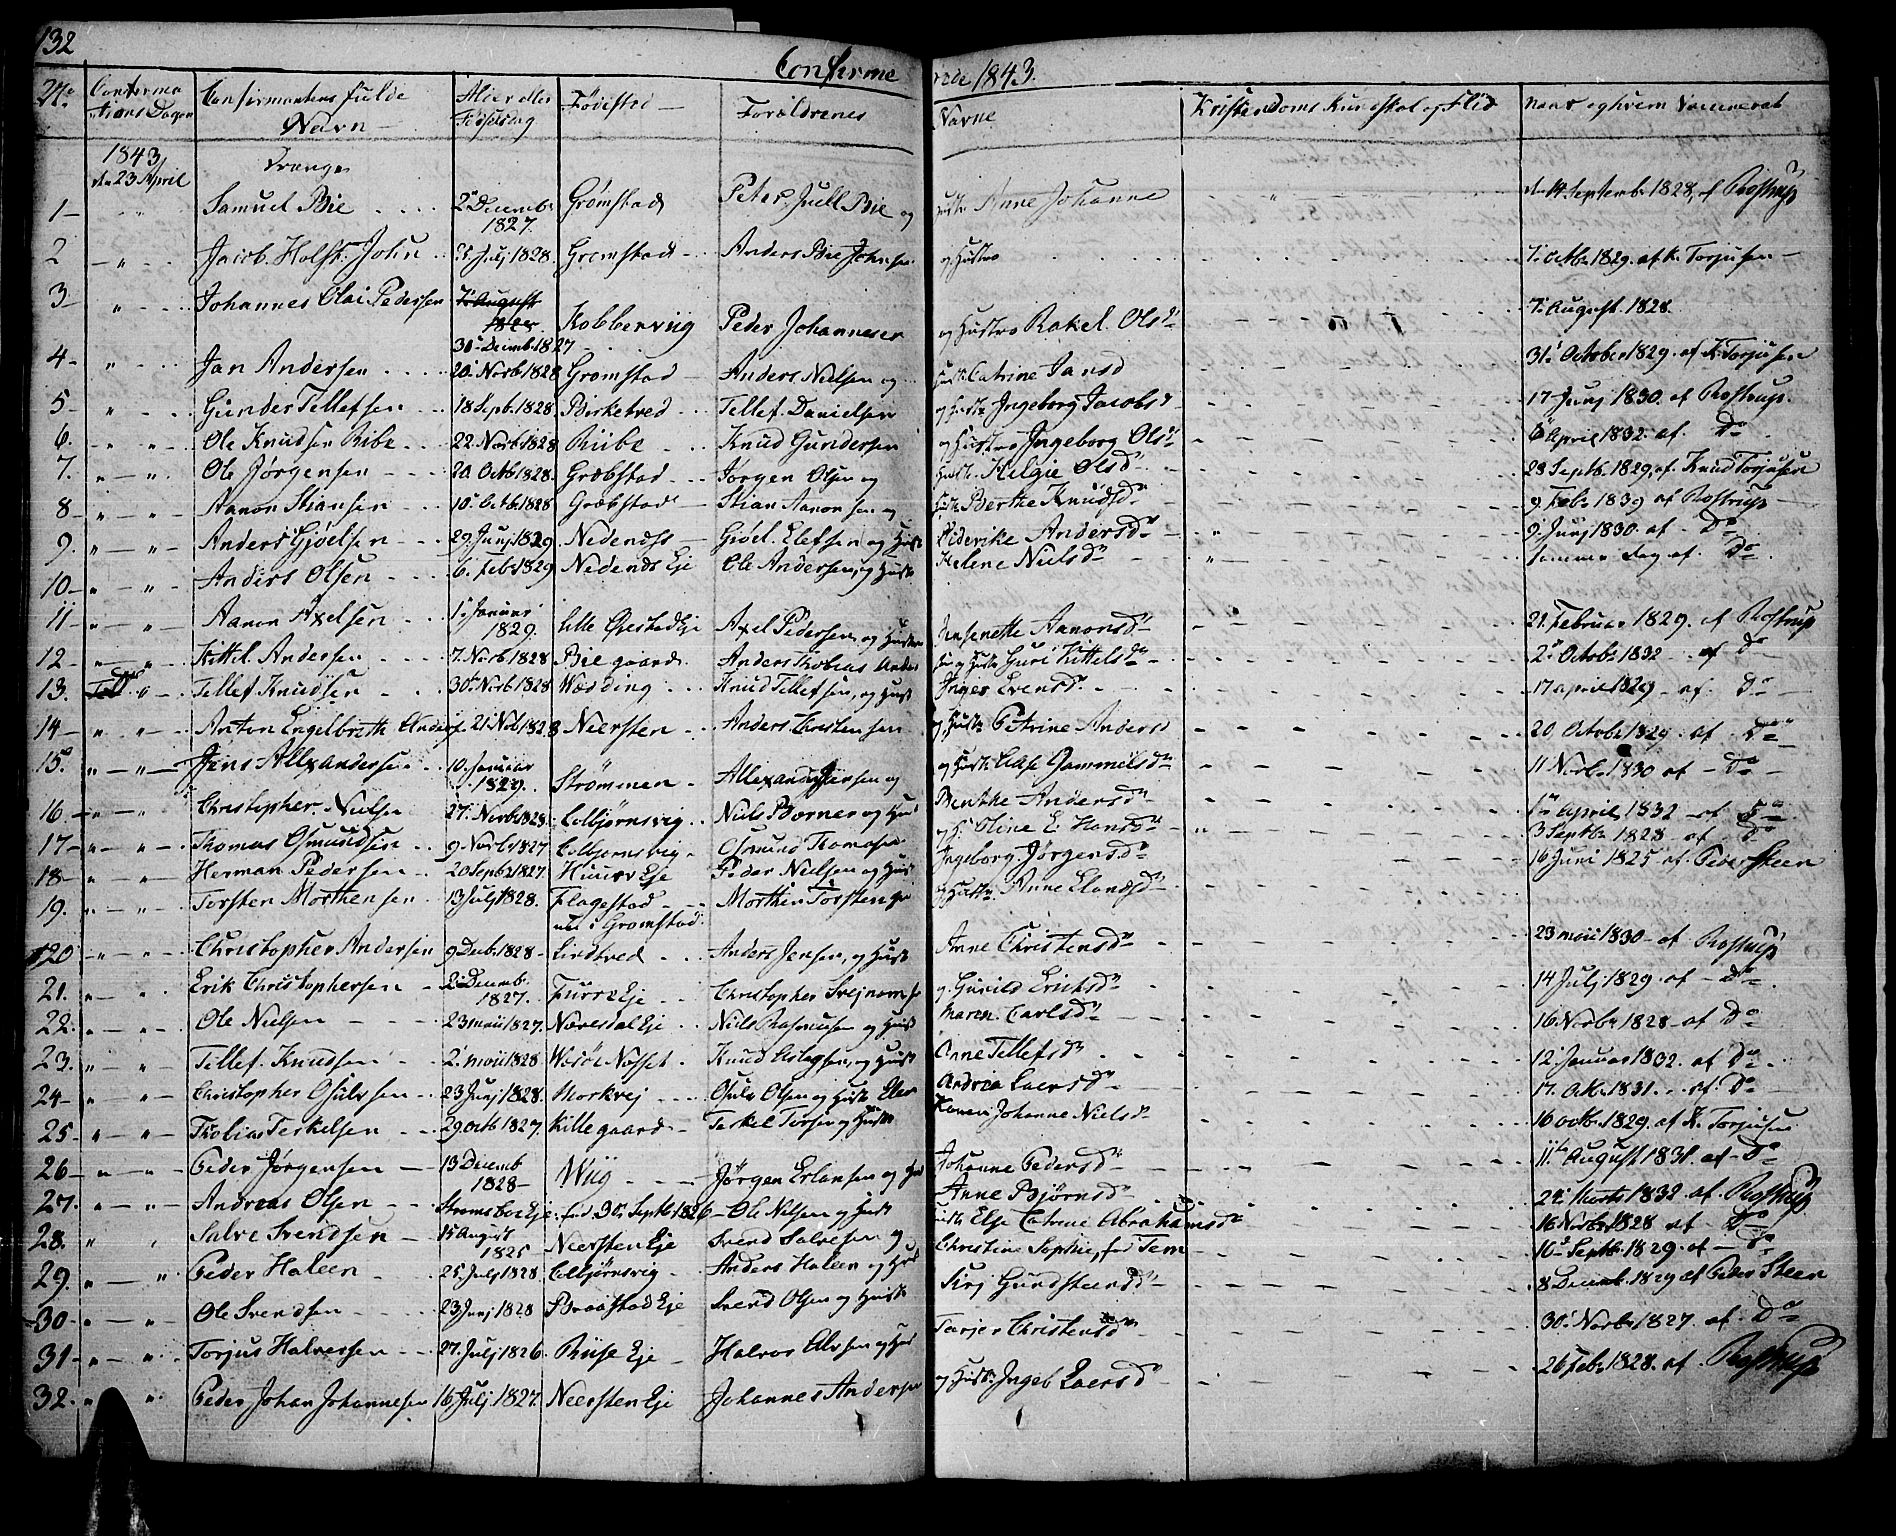 132
Confirme rede 1843.
No Confirma tions Dagen Confirmantens fulde Navn Alder eller Fødselsdag Fødested Forældrenes Navne Kristendoms Kundskab og Flid naar og hvem Vaccineret
1843 den 23 April Drenge
1 Samuel Bie 2 Decembr 1827. Grømstad Peter Juell Bie og Hustr Anne Johanne d. 14 Septembr 1828, af Rostrup
2 Jacob Holst John Julj 1828 Gromstad Anders Bie Johnsen og Hustro 7 Octbr 1829. af K. Torjusen
3 Johannes Olai Pedersen 7 August 1828 30 Decmb. 1827 Kobbervig Peder Johannesen og Hustro Rakel Olsdr 7 August 1828.
4 Jan Andersen 20 Novb 1828 Gromstad Anders Nielsen og Hust. Catrine Jansd 31 October 1829 af K. Torjusen
5 Gunder Tellefsen 18 Sept. 1828 Birketved Tellef Danielsen og Hustr Ingeborg Jacobsd 17 Junj 1830. af Rostrup.
6. Ole Knudsen Ribe 22. Novb 1828 Riibe Knud Gundersen og Hustro Ingeborg Olsdr 6 April 1832. af Do
7. Ole Jørgensen 20. Octb 1828. Græbstad Jørgen Olsen og Hustr. Helgie Olsd 28 Septb. 1829, af Knud Torjusen
8 Aanon Stiansen 10 Octb. 1828 Græbstad Stian Aanonsen og Hustr Berthe Knudsdr 9 Feb. 1839 af Rostrup
9. Anders Gjøelsen 29 Junj 1829 Nedenæs Gjøel. Elefsen og Hust Diderikke Andersdr 9 Junj 1830. af Do
10 Anders Olsen 6. Feb. 1829 Nedenæs Eje Ole Andersen, og Hustr Helene Nielsdr samme dag af Do
11 Aanon Axelsen 1 Januar 1829. Lille Ørestad Eje Axel Pedersen, og Hustroe Jensenette Aanonsdr 21 Februar 1829. af Rostrup
12 Kittel Andersen 7. Novb 1828 Bie gaard Anders Tobias Anders sen og Hustr Guri Kittelsdr 2 Octobr 1832 af Do
13. Tellef Knudsen 30 Novb 1828 Wedding Knud Tellefsen, og Hust Inger Evensd. 17 april 1829 af Do
14 Anton Engelbreth Anders. 21 Nob 1828 Niersten Anders Christensen og Hustr Petrine Anders 20 Octobr 1829. af Do
15. Jens Allexandersen 10. Januar 1829. Strømmen Allexander Jensen og og Hustr Else Gammelsdr 11 Novb. 1830 af Do
16. Christopher. Nielsen 27. Novb 1828. Colbjørnsvig. Niels Børnes og Hust Benthe Andersdr 1 April 1832 af Do
17 Thomas Osmundsen 9 Novb 1827 Colbjørnsvig Osmund Thomasen og H. Oline E. Hansdr 3 Septb 1828 af Do
18 Herman Pedersen 20 Septb 1827. Huuse Eje Peder Nielsen og Hust Ingeborg Jørgensdr 16 Juni 1825 af Peder Steen
19. Torsten Morthensen 13 Julj 1828. Flagestad nu i Gromstad. Morthen Torstensen og Hustr. Anne Elandsdr
20 Christopher Andersen 9 Decb. 1828 Lindtved Anders Jensen, og Hust Anne Christensdr 23 maii 1830 af Rostrup
21. Erik Christophersen 2 Decemb. 1827. Furre Eje Christopher Svejnomsen og. Gunild Eriksdr 14 Julj 1829 af Do
22. Ole Nielsen 23 maii 1827. Næresdal Eje Niels Rasmusen og Hust Maren Carlsdr 16 Novbr 1828 af Do
23. Tellef Knudsen 2. maii 1828 Wesøe Nosset. Knud Aslagsen, og Hust Anne Tellefsdr 12 Januar 1832. af Do
24 Christopher Osulvsen 23 Junj 1828. Morkvej Osulv Olsen og Hustr Elen Andrea Laersdr 17. Octb. 1831. af Do
25. Thobias Terkelsen 29 octb 1827. Kille gaard Terkel Torsen og Hustr Karen Johanne Nielsdr 10 octb. 1829. af K. Torjusen
26 Peder Jørgensen 13 Decemb 1828 Wiig Jørgen Erlansen og Hust Johanne Pedersdr 11 August 1831. af Do
27. Andreas Olsen Strømsboe Eje: fød 30 Septb 1826 Ole Nilsen og Hust Anne Bjørnsdr 24 Marts 1832 af Rostrup
28. Salve Svendsen 15 August 1825 Neersten Eje Svend Salvesen og Hustr Else Catrine Abrahamsdr 16 Novb 1828 af Do
29. Peder Haleen 25. Julj 1828. Colbjørnsvig Anders Haleen og Hust Christine Sophie, fød Tem 10 Septb. 1829. af Do
30 Ole Svendsen 23 Junj 1828 Braastad Eje Svend Olsen og Hustr Sirj Gundsteensdr 8 Decemb. 1829 af Peder Steen
31 Torjus Halvorsen 27. Julj 1826 Riise Eje Halvor Alvsen og Hust Tarjer Christensdr 30 Novb 1827. af Do
32. Peder Johan Johannesen 16 Julj 1827. Neersten Eje Johannes Andersen og Hustr. Ingeb Laersdr 26 Feb. 1828. af Rostrup